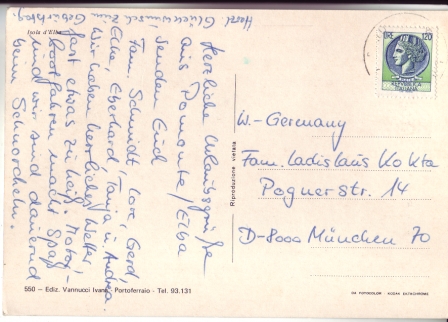 Herzl Glückwunsch zum Geburtstag.
Isola d'Elba
Herzliche Urlaubsgrüße
aus Pomonte / Elba
senden Euch
Fam. Schmidt, Lore, Gerd
Elke, Eberhard, Tanja u. Andrea
Wir haben herrliches Wetter,
fast etwas zu heiß. Motor-
bootfahren macht Spaß
und wir sind dauernd
beim Schnorcheln.
LIRE 120
W.-Germany
Fam. Ladislaus Kokta
Pognerstr. 14
D-8000 München 70
Riproduzione vietata
550 - Ediz. Vannucci Ivana - Portoferraio - Tel. 93.131
DA FOTOCOLOR - KODAK EKTACHROME